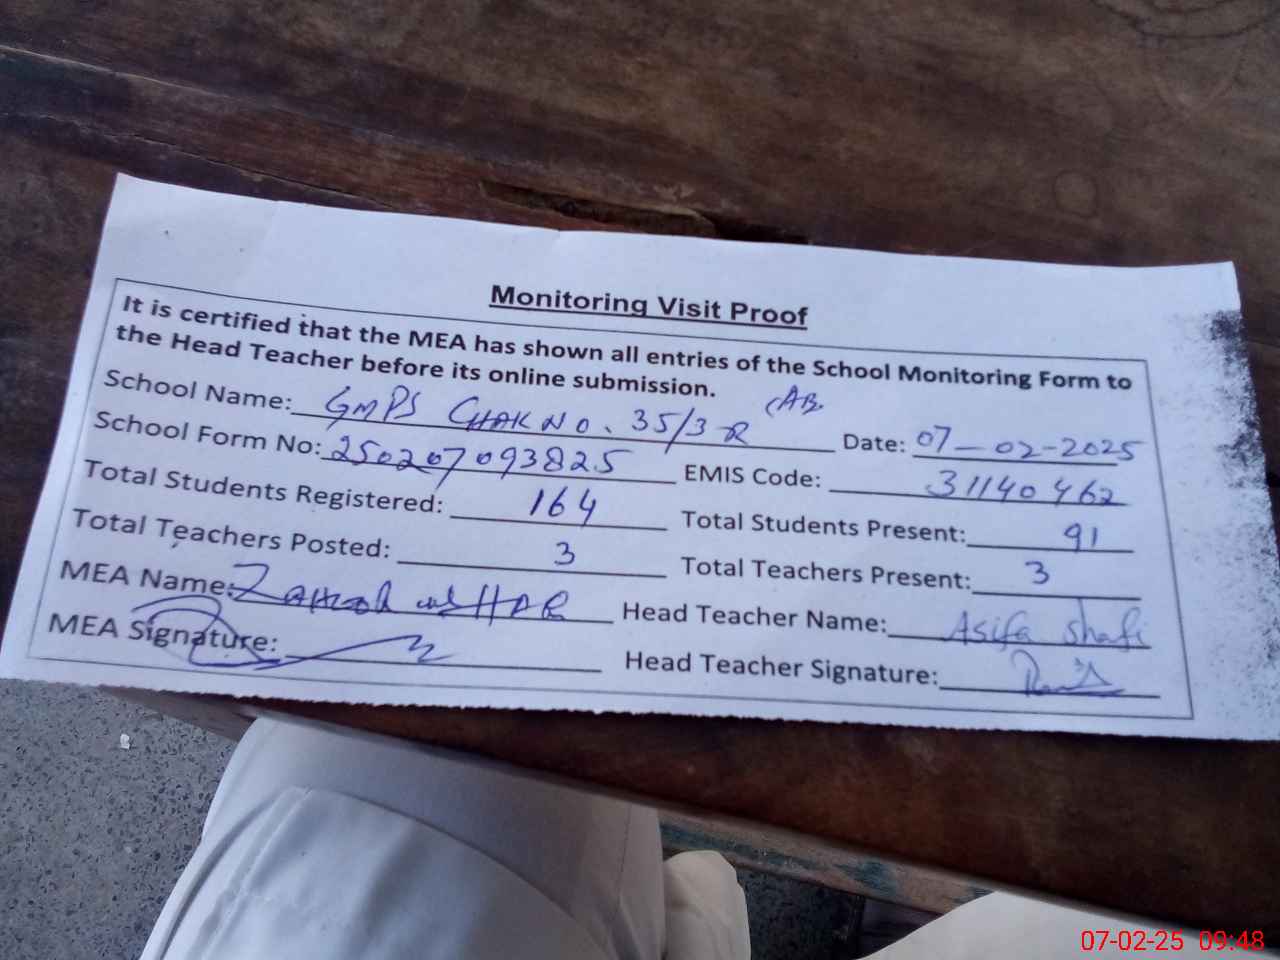 Monitoring Visit Proof
It is certified that the MEA has shown all entries of the School Monitoring Form to
the Head Teacher before its online submission.
School Name: GMPS CHAK NO. 35/3-R (AB. Date: 07-02-2025
School Form No: 250207093825 EMIS Code: 31140462
Total Students Registered: 164 Total Students Present: 91
Total Teachers Posted: 3 Total Teachers Present: 3
MEA Name: Head Teacher Name: Asifa Shafi
MEA Signature: Head Teacher Signature:
07-02-25 09:48